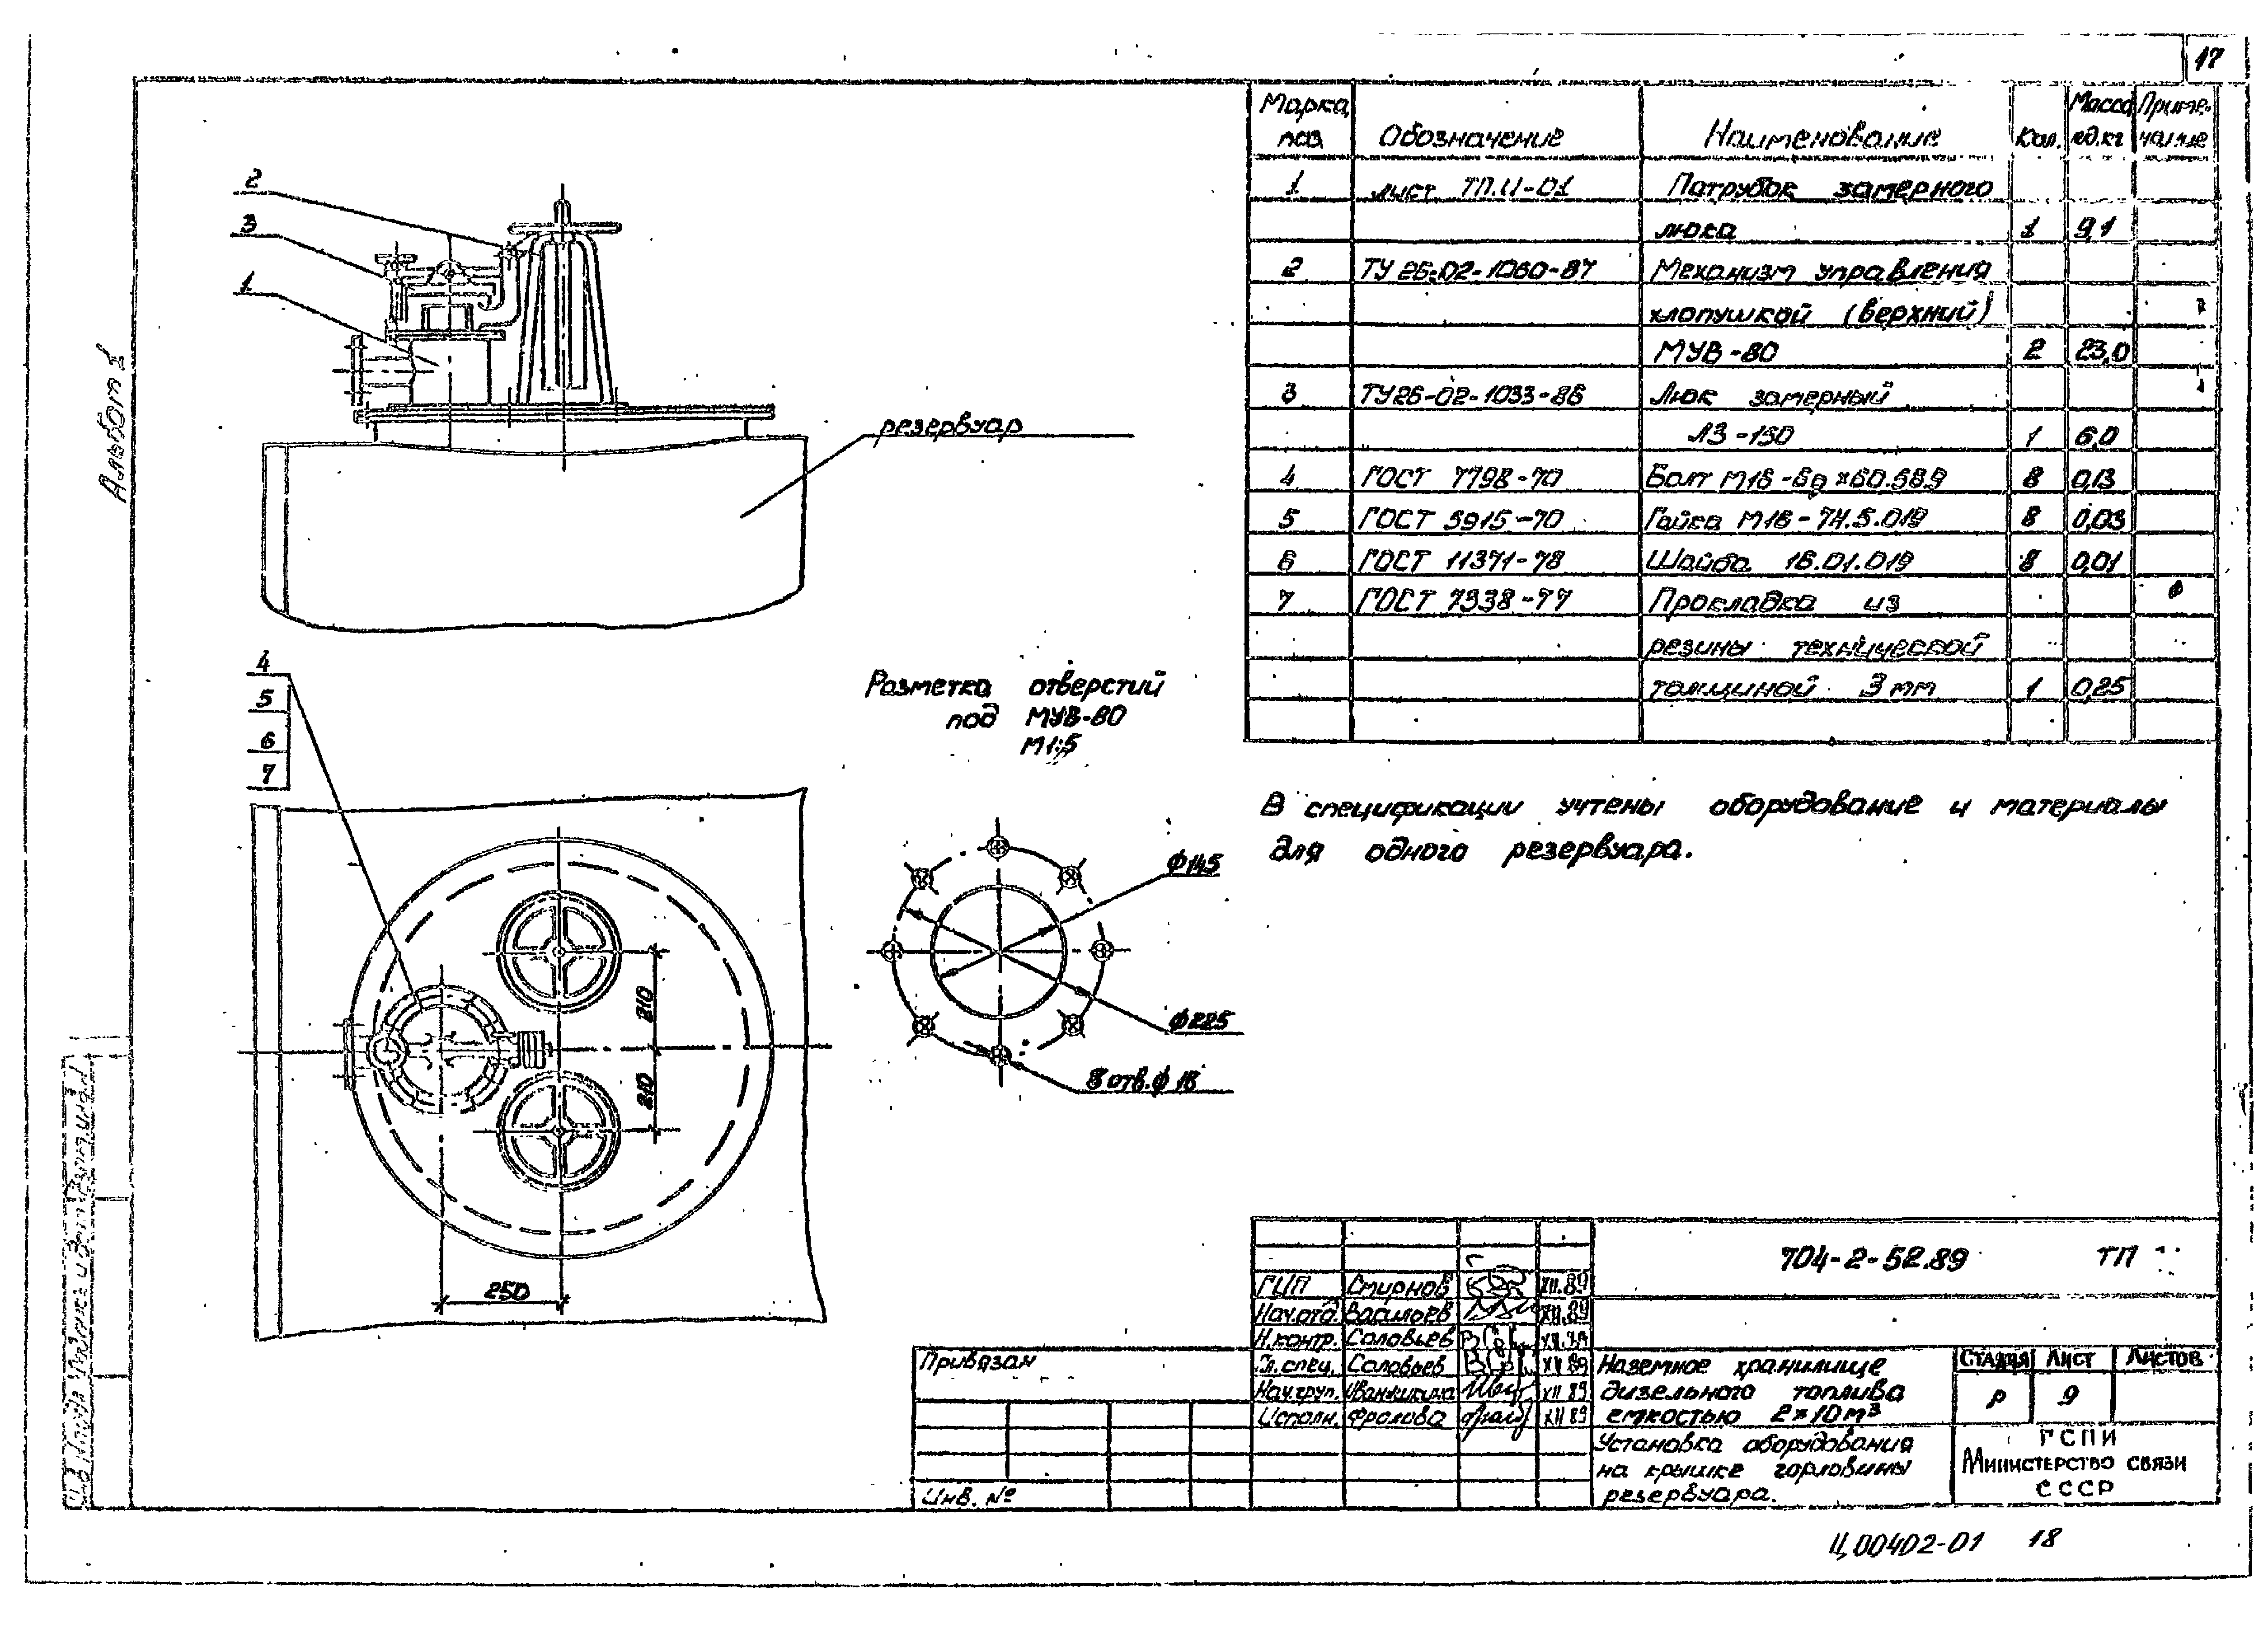 17
Альбом 1
2
3
1
резервуар
4
5
6
7
210
210
250
Разметка отверстий
под МУВ-80
М1:5
ф145
ф225
8 отв. ф 18
Марка, поз. Обозначение Наименование Кол. Масса ед.кг Приме-чание
1 лист ТП.И-01 Патрубок замерного
люка 1 9,1
2 ТУ 26-02-1060-87 Механизм управления
хлопушкой (верхний)
МУВ-80 2 23,0
3 ТУ26-02-1033-86 Люк замерный
ЛЗ-150 1 6,0
4 ГОСТ 7798-70 Болт М16-6g×60.589 8 0,13
5 ГОСТ 5915-70 Гайка М16-7Н.5.019 8 0,03
6 ГОСТ 11371-78 Шайба 16.01.019 8 0,01
7 ГОСТ 7338-77 Прокладка из
резины технической
толщиной 3 мм 1 0,25
В спецификации учтены оборудование и материалы
для одного резервуара.
704-2-52.89 ТП
ГИП Смирнов XII.89
Нач.отд. Васильев XII.89
Н.контр. Соловьев XII.89
Гл.спец. Соловьев XII 89
Нач.груп. XII 89
Исполн. Фролова XII 89
Привязан
Инв. №
Наземное хранилище
дизельного топлива
емкостью 2×10 м³
Стадия Лист Листов
Р 9
Установка оборудования
на крышке горловины
резервуара.
ГСПИ
Министерство связи
СССР
Инв № подл Подпись и дата Взам.инв.№
Ц00402-01 18